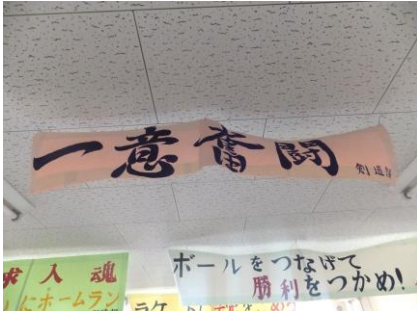 一意奮闘
剣道部
求入魂
にホームラン
ボールをつなげて
勝利をつかめ!